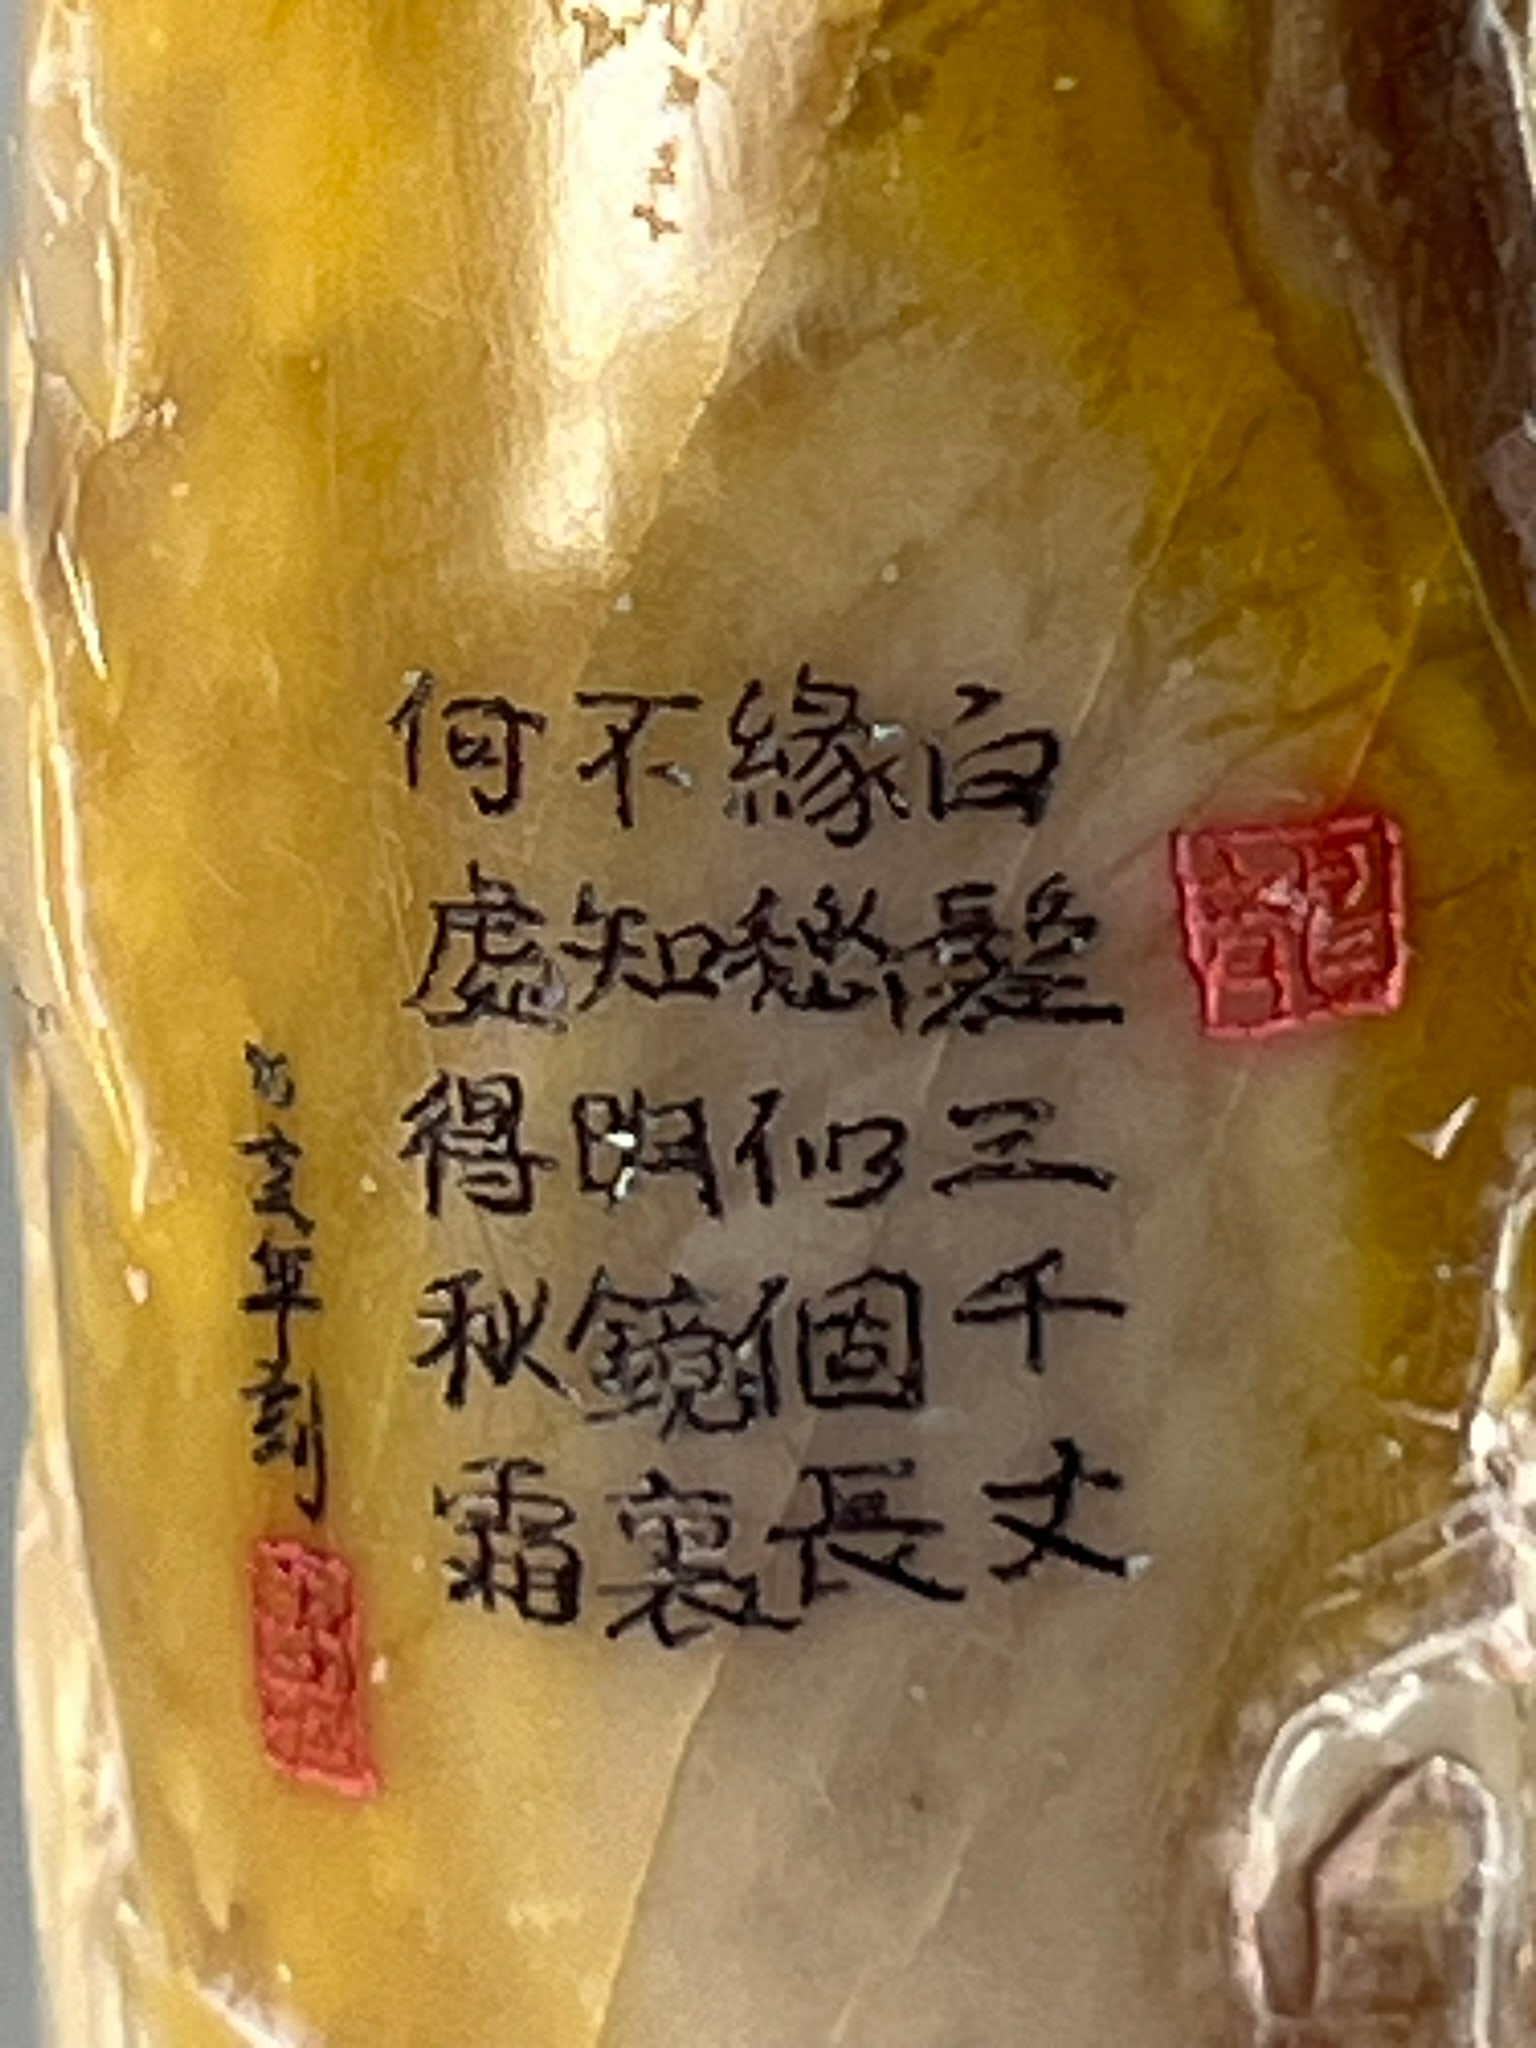 白髮三千丈
緣愁似個長
不知明鏡裏
何處得秋霜
亥年刻